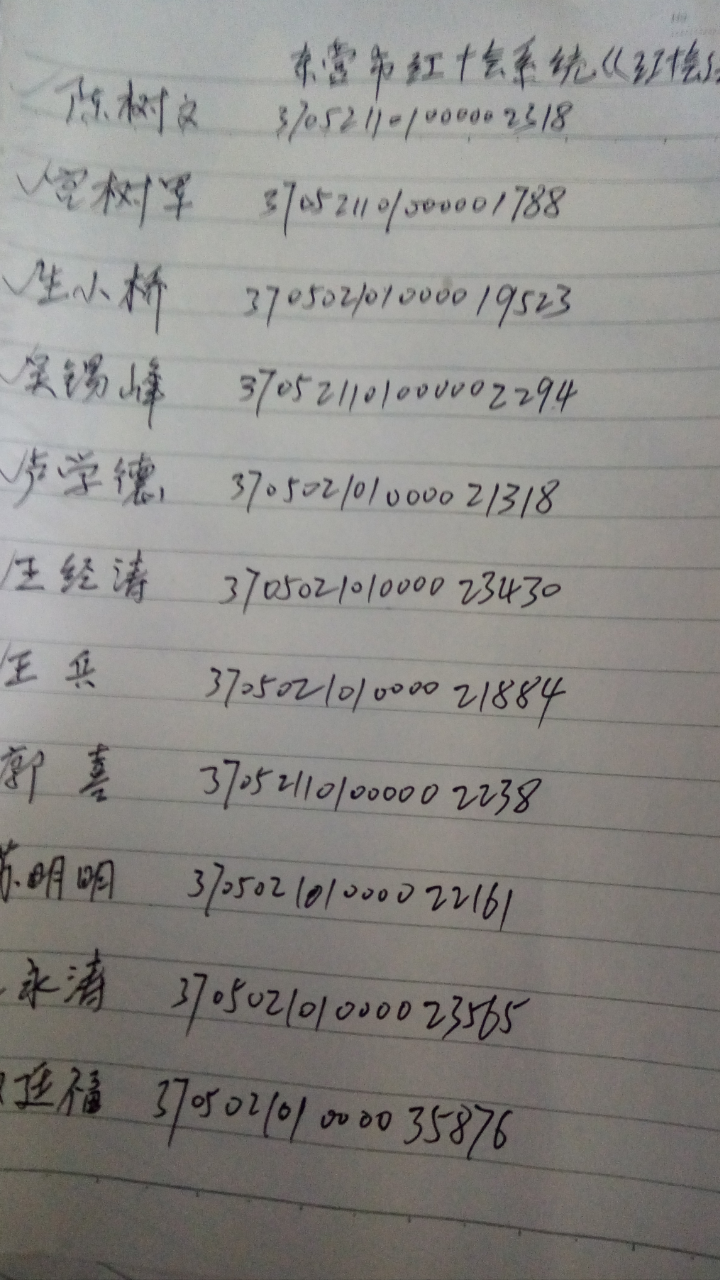 东营市红十会系统《红十会
陈树文 370521101000002318
宫树军 370521101000001788
生小桥 370502101000019523
吴锡峰 370521101000002294
卢学德 370502101000021318
王经涛 370502101000023430
王兵 370502101000021884
郭喜 370521101000002238
苏明明 370502101000022161
永涛 370502101000023565
廷福 370502101000035876